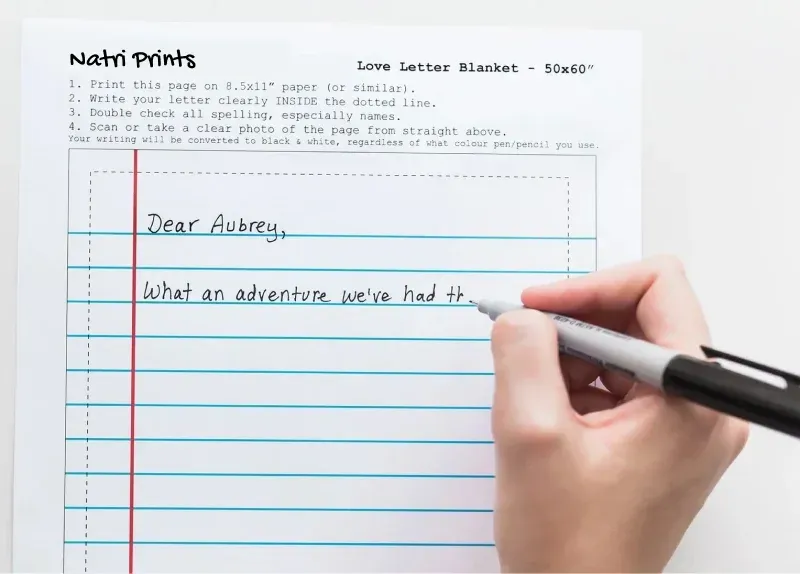 Natri Prints
Love Letter Blanket - 50x60"
1. Print this page on 8.5x11" paper (or similar).
2. Write your letter clearly INSIDE the dotted line.
3. Double check all spelling, especially names.
4. Scan or take a clear photo of the page from straight above.
Your writing will be converted to black & white, regardless of what colour pen/pencil you use.
Dear Aubrey,
What an adventure we've had th